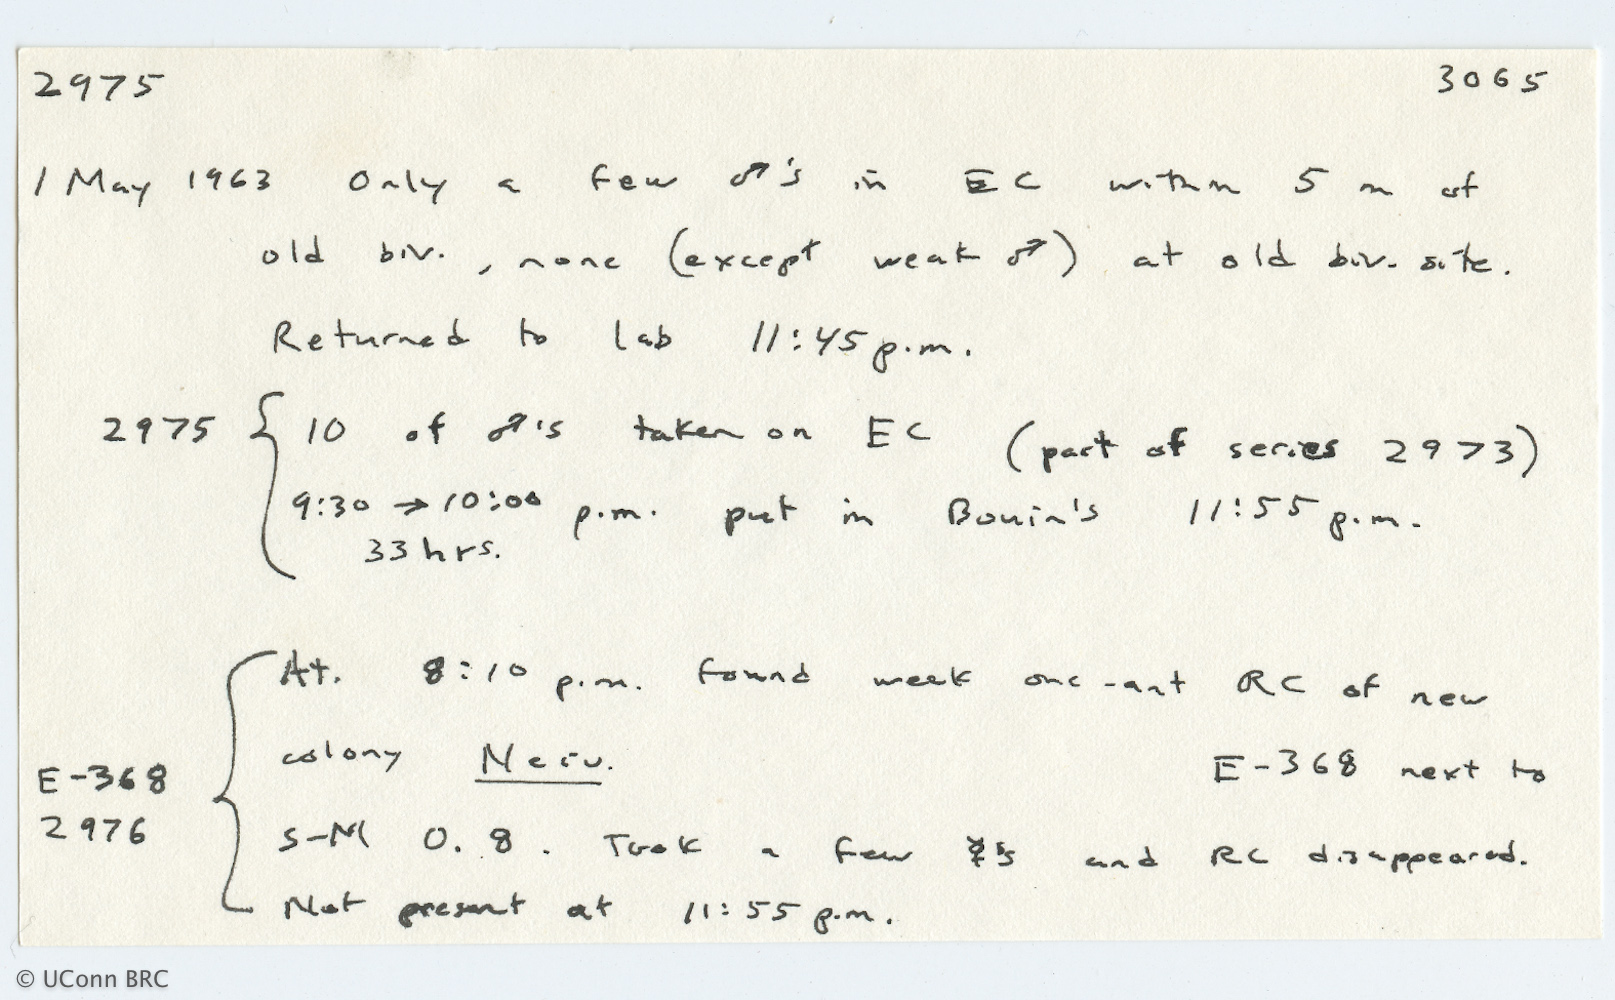 2975 3065
1 May 1963 Only a few ♂'s in EC within 5 m of
old biv., none (except weak ♂) at old biv. site.
Returned to lab 11:45 p.m.
2975 { 10 of ♂'s taken on EC (part of series 2973)
9:30 → 10:00 p.m. put in Bouin's 11:55 p.m.
33 hrs.
At. 8:10 p.m. found weak one-ant RC of new
colony E-368 next to
E-368
2976
S-M 0.8. Took a few ☿'s and RC disappeared.
Not present at 11:55 p.m.
© UConn BRC